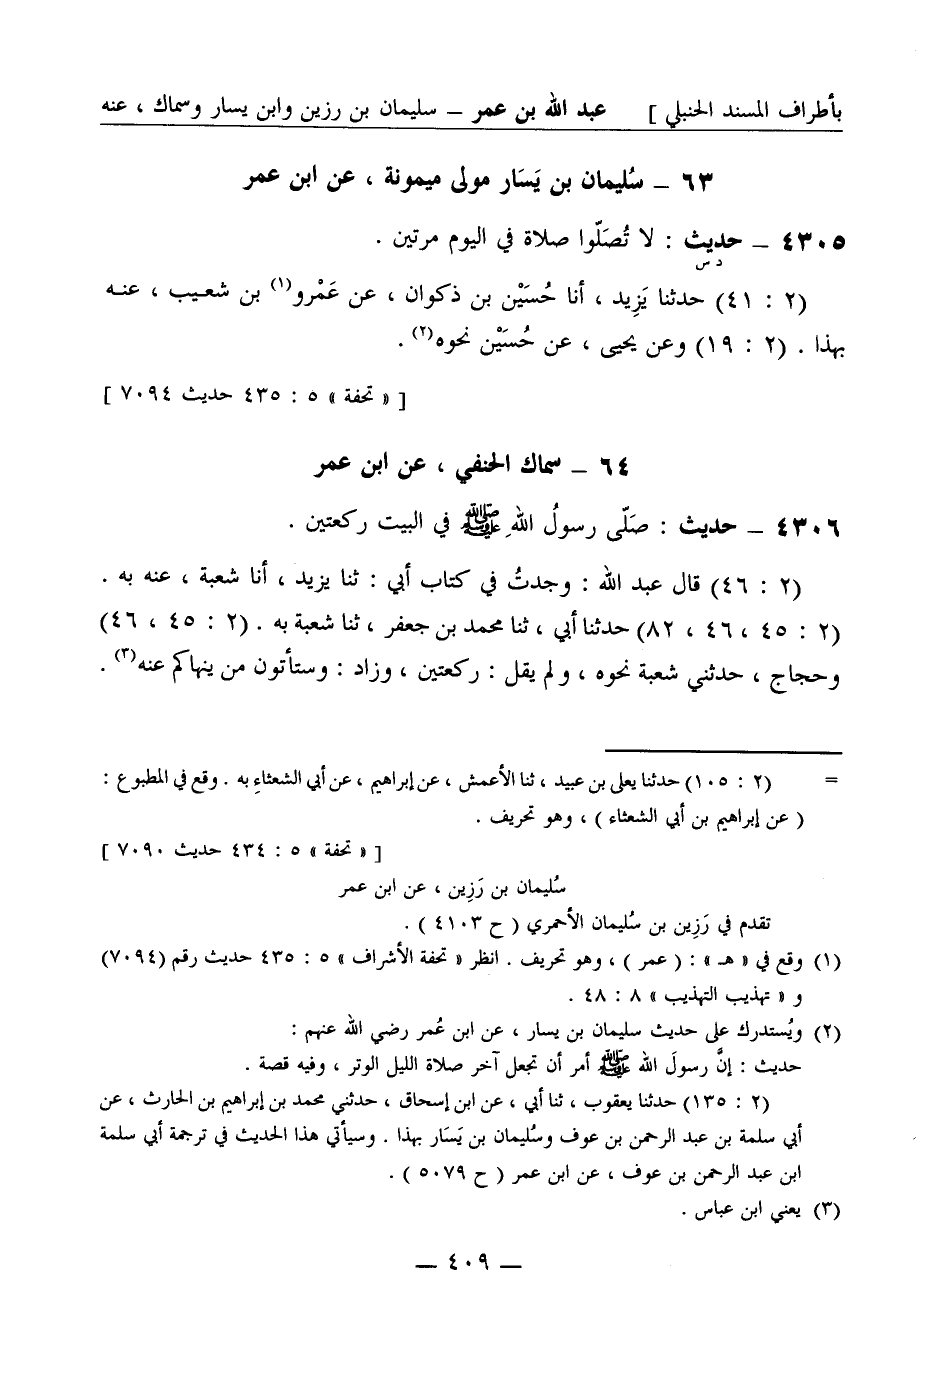 بأطراف المسند الحنبلي ] عبد الله بن عمر – سليمان بن رزين وابن يسار وسماك ، عنه
٦٣ – سُليمان بن يَسَار مولى ميمونة ، عن ابن عمر
٤٣٠٥ – حديث : لا تُصَلّوا صلاة في اليوم مرتين .
د س
(٢ : ٤١) حدثنا يَزِيد ، أنا حُسَيْن بن ذكوان ، عن عَمْرو(١) بن شعيب ، عنه
بهذا . (٢ : ١٩) وعن يحيى ، عن حُسَيْن نحوه(٢) .
[ « تحفة » ٥ : ٤٣٥ حديث ٧٠٩٤ ]
٦٤ – سماك الحنفي ، عن ابن عمر
٤٣٠٦ – حديث : صَلّى رسولُ اللهِ ﷺ في البيت ركعتين .
(٢ : ٤٦) قال عبد الله : وجدتُ في كتاب أبي : ثنا يزيد ، أنا شعبة ، عنه به .
(٢ : ٤٥ ، ٤٦ ، ٨٢) حدثنا أبي ، ثنا محمد بن جعفر ، ثنا شعبة به . (٢ : ٤٥ ، ٤٦)
وحجاج ، حدثني شعبة نحوه ، ولم يقل : ركعتين ، وزاد : وستأتون من ينهاكم عنه(٣) .
= (٢ : ١٠٥) حدثنا يعلى بن عبيد ، ثنا الأعمش ، عن إبراهيم ، عن أبي الشعثاءِ به . وقع في المطبوع :
( عن إبراهيم بن أبي الشعثاء ) ، وهو تحريف .
[ « تحفة » ٥ : ٤٣٤ حديث ٧٠٩٠ ]
سُليمان بن رَزِين ، عن ابن عمر
تقدم في رَزِين بن سُليمان الأحمري ( ح ٤١٠٣ ) .
(١) وقع في « هـ » : ( عمر ) ، وهو تحريف . انظر « تحفة الأشراف » ٥ : ٤٣٥ حديث رقم (٧٠٩٤)
و « تهذيب التهذيب » ٨ : ٤٨ .
(٢) ويُستدرك على حديث سليمان بن يسار ، عن ابن عُمر رضي الله عنهم :
حديث : إنَّ رسولَ الله ﷺ أمر أن تجعل آخر صلاة الليل الوتر ، وفيه قصة .
(٢ : ١٣٥) حدثنا يعقوب ، ثنا أبي ، عن ابن إسحاق ، حدثني محمد بن إبراهيم بن الحارث ، عن
أبي سلمة بن عبد الرحمن بن عوف وسُليمان بن يَسَار بهذا . وسيأتي هذا الحديث في ترجمة أبي سلمة
ابن عبد الرحمن بن عوف ، عن ابن عمر ( ح ٥٠٧٩ ) .
(٣) يعني ابن عباس .
— ٤٠٩ —